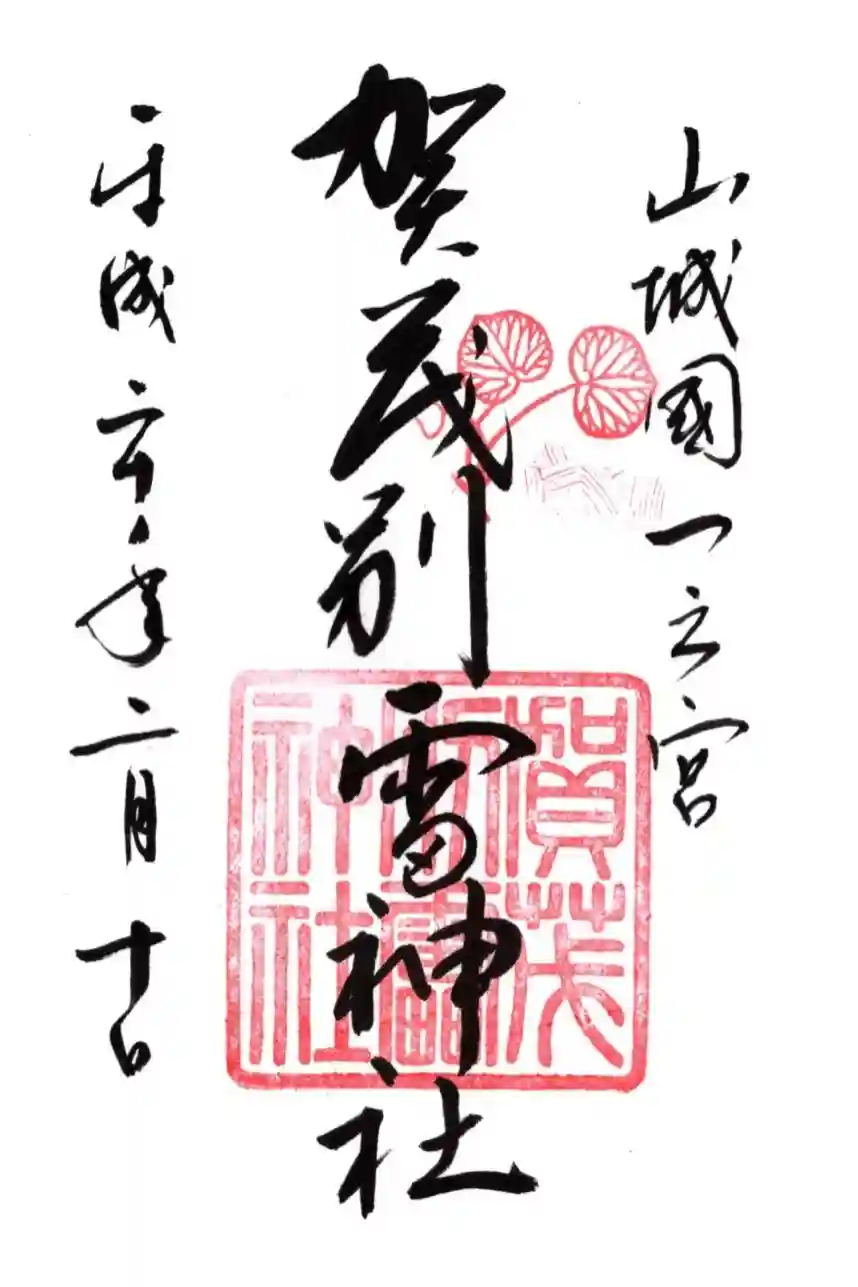 山城國一之宮
賀茂別雷神社
平成二十年二月十日
賀茂
別雷
神社